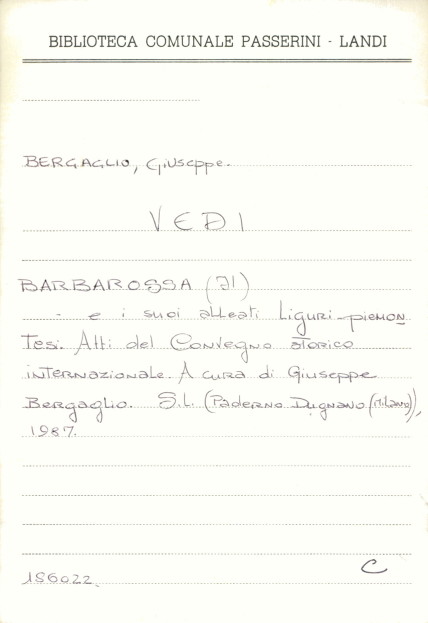 BIBLIOTECA COMUNALE PASSERINI - LANDI
BERGAGLIO, Giuseppe.
VEDI
BARBAROSSA (Il)
- e i suoi alleati Liguri-piemon
tesi. Atti del Convegno storico
internazionale. A cura di Giuseppe
Bergaglio. S.L. (Paderno Dugnano (Milano)),
1987.
C
156022.